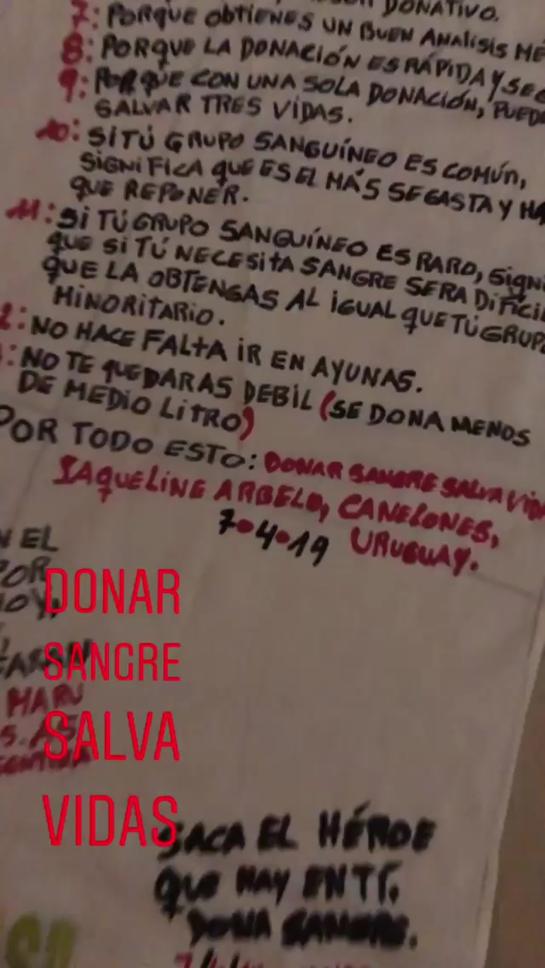 DONATIVO.
7: PORQUE OBTIENES UN BUEN ANALISIS MÉ
8: PORQUE LA DONACIÓN ES RÁPIDA Y SEG
9: PORQUE CON UNA SOLA DONACIÓN, PUED
SALVAR TRES VIDAS.
10: SI TÚ GRUPO SANGUÍNEO ES COMÚN,
SIGNIFICA QUE ES EL MÁS SE GASTA Y HA
QUE REPONER.
11: SI TÚ GRUPO SANGUÍNEO ES RARO, SIGNI
QUE SI TÚ NECESITA SANGRE SERA DIFÍCIL
QUE LA OBTENGAS AL IGUAL QUE TÚ GRUPO
MINORITARIO.
2: NO HACE FALTA IR EN AYUNAS.
: NO TE QUEDARAS DEBIL (SE DONA MENOS
DE MEDIO LITRO)
POR TODO ESTO: DONAR SANGRE SALVA VID
JAQUELINE ARBELO, CANELONES,
7•4•19 URUGUAY.
N EL
POR
HOY,
MARU
DONAR
SANGRE
SALVA
VIDAS
SACA EL HÉROE
QUE HAY EN TI.
DONA SANGRE.